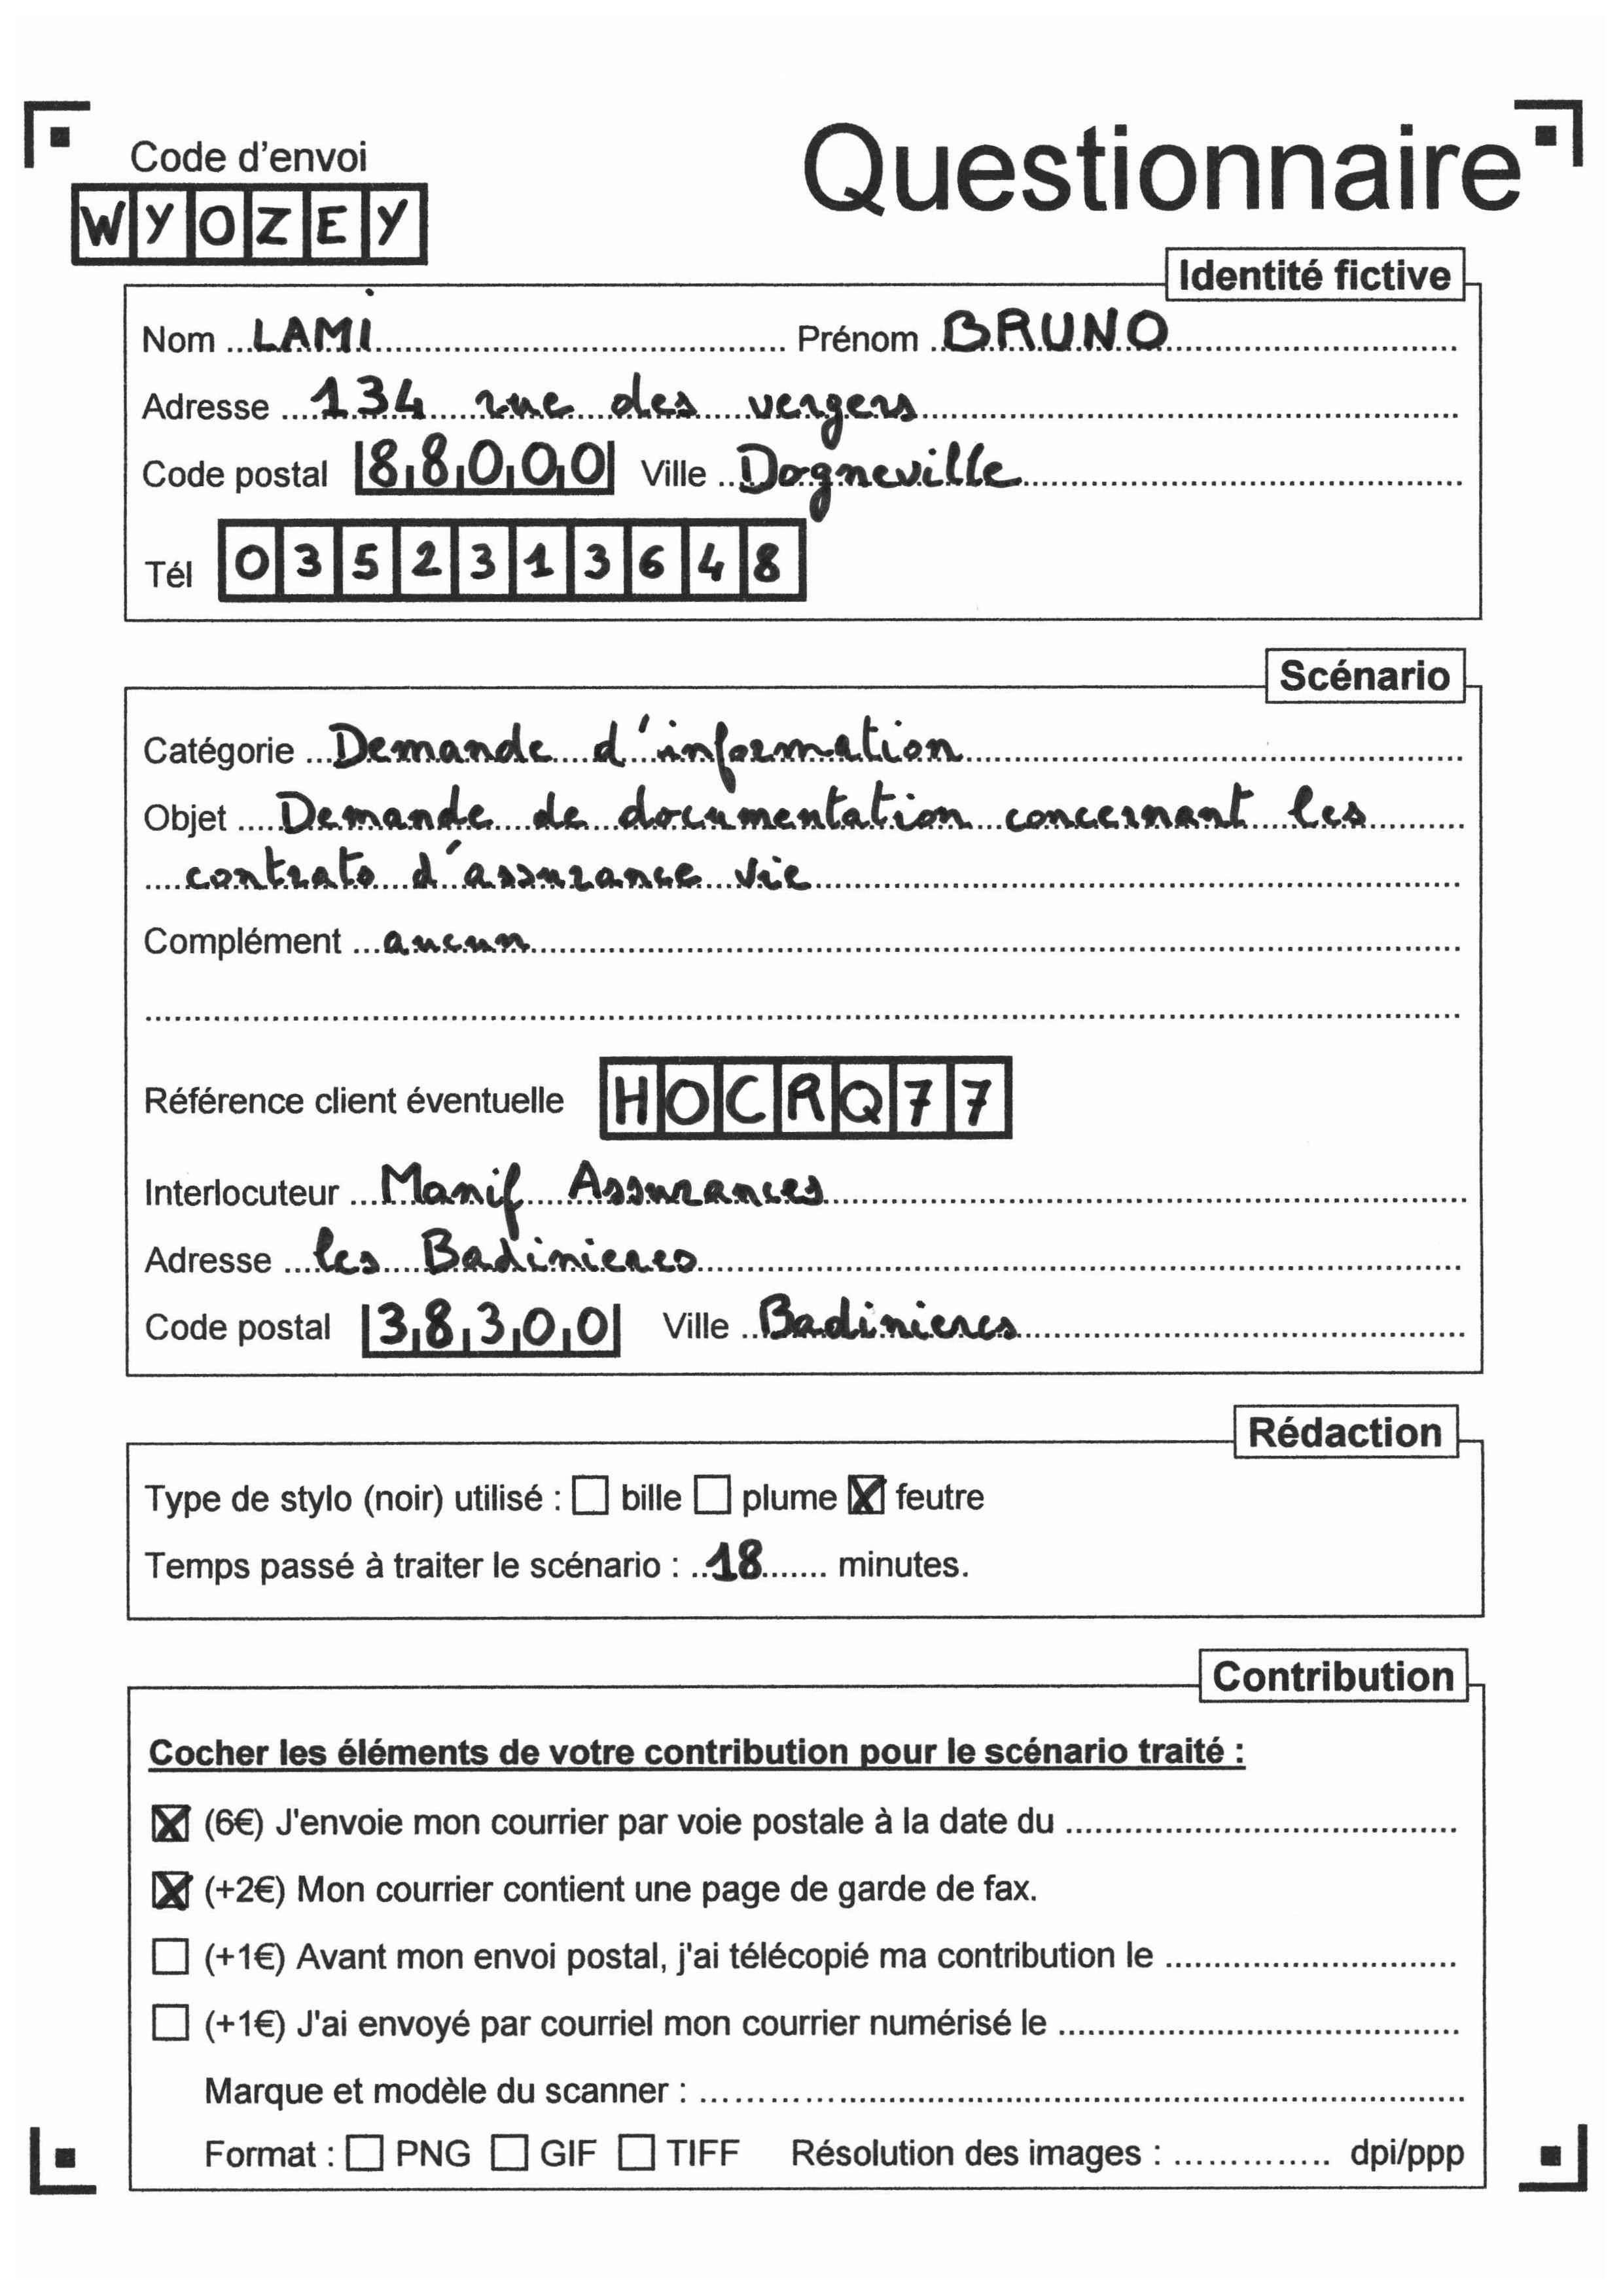 Code d'envoi
Questionnaire
WYOZEY
Identité fictive
Nom LAMI Prénom BRUNO
Adresse 134 rue des vergers
Code postal 88000 Ville Dogneville
Tél 0352313648
Scénario
Catégorie Demande d'information
Objet Demande de documentation concernant les
contrats d'assurance vie
Complément aucun
Référence client éventuelle HOCRQ77
Interlocuteur Manif Assurances
Adresse les Badinieres
Code postal 38300 Ville Badinieres
Rédaction
Type de stylo (noir) utilisé : ☐ bille ☐ plume ☒ feutre
Temps passé à traiter le scénario : 18 minutes.
Contribution
Cocher les éléments de votre contribution pour le scénario traité :
☒ (6€) J'envoie mon courrier par voie postale à la date du
☒ (+2€) Mon courrier contient une page de garde de fax.
☐ (+1€) Avant mon envoi postal, j'ai télécopié ma contribution le
☐ (+1€) J'ai envoyé par courriel mon courrier numérisé le
Marque et modèle du scanner :
Format : ☐ PNG ☐ GIF ☐ TIFF Résolution des images : dpi/ppp